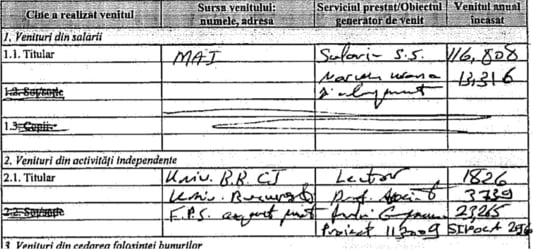 Cine a realizat venitul Sursa venitului: numele, adresa Serviciul prestat/Obiectul generator de venit Venitul anual încasat
1. Venituri din salarii
1.1. Titular MAI Salariu S.S. 116,808
13,316
1.2. Soț/soție
1.3. Copii
2. Venituri din activități independente
2.1. Titular Univ. B.B. CJ Lector 1826
Univ. București Prof. 3739
2.2. Soț/soție 23265
Proiect SIPOCA
3. Venituri din cedarea folosinței bunurilor